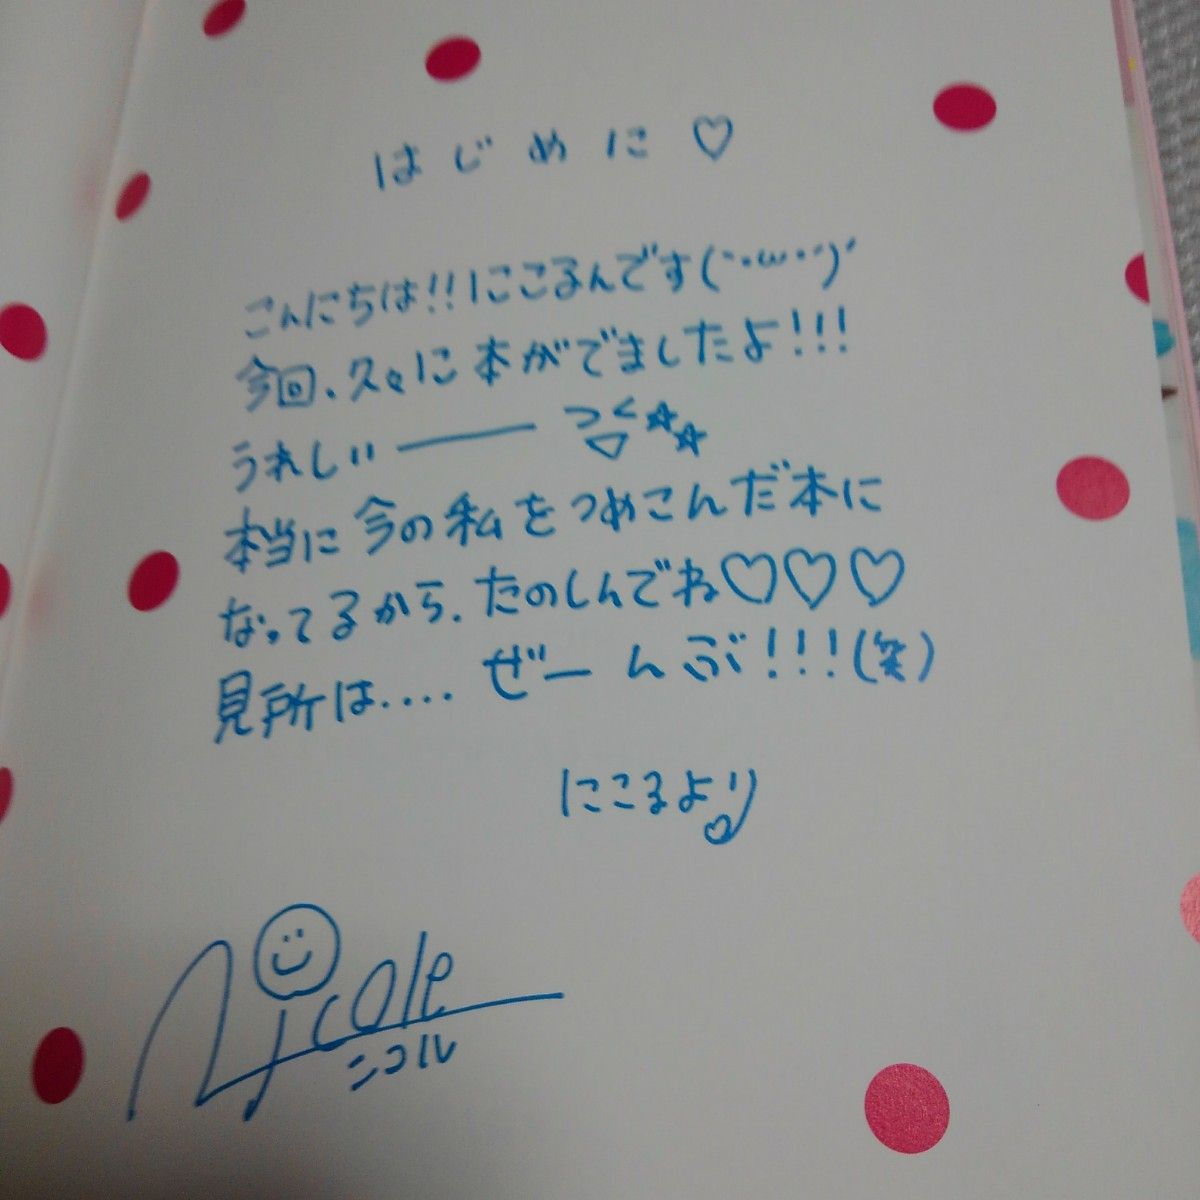 はじめに♡
こんにちは!!にこるんです(˘•ω•˘)ˊ
今回、久々に本がでましたよ!!!
うれしい――― ☆☆
本当に今の私をつめこんだ本に
なってるから、たのしんでね♡♡♡
見所は.... ぜーんぶ!!!(笑)
にこるより♡
Nicole
ニコル